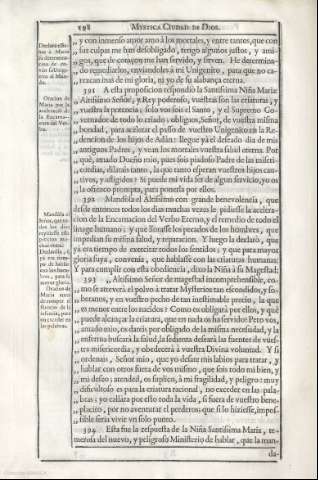 198
MYSTICA CIUDAD DE DIOS.
y con inmenso amor amo à los mortales, y entre tantos, que con
sus culpas me han desobligado, tengo algunos justos, y ami-
gos, que de coraçon me han servido, y sirven. He determina-
do remediarlos, enviandoles à mi Unigenito, para que no ca-
rezcan mas de mi gloria, ni yo de su alabança eterna.
391 A esta proposicion respondiò la Santissima Niña Maria:
Altissimo Señor, y Rey poderoso, vuestras son las criaturas, y
vuestra la potencia; solo vos sois el Santo, y el Supremo Go-
vernador de todo lo criado; obligaos, Señor, de vuestra misma
bondad, para acelerar el passo de vuestro Unigenito en la Re-
dencion de los hijos de Adàn: llegue yà el deseado dia de mis
antiguos Padres, y vean los mortales vuestra salud eterna. Por
què, amado Dueño mio, pues sois piadoso Padre de las miseri-
cordias, dilatais tanto, la que tanto esperan vuestros hijos cauti-
vos, y afligidos? Si puede mi vida ser de algun servicio, yo os
la ofrezco prompta, para ponerla por ellos.
392 Mandòla el Altissimo con grande benevolencia, que
desde entonces todos los dias muchas vezes le pidiesse la acelera-
cion de la Encarnacion del Verbo Eterno, y el remedio de todo el
linage humano; y que llorasse los pecados de los hombres, que
impedian su misma salud, y reparacion. Y luego la declarò, que
yà era tiempo de exercitar todos los sentidos; y que para mayor
gloria suya, convenia, que hablasse con las criaturas humanas.
Y para cumplir con esta obediencia, dixo la Niña à su Magestad:
393 Altissimo Señor de magestad incomprehensible, co-
mo se atreverà el polvo à tratar Mysterios tan escondidos, y so-
beranos, y en vuestro pecho de tan inestimable precio, la que
es menor entre los nacidos? Como os obligarà por ellos, y què
puede alcançar la criatura, que en nada os ha servido? Pero vos,
amado mio, os dareis por obligado de la misma necessidad, y la
enferma buscarà la salud, la sedienta deseará las fuentes de vues-
tra misericordia, y obedecerà à vuestra Divina voluntad. Y si
ordenais, Señor mio, que yo desate mis labios para tratar, y
hablar con otros fuera de vos mismo, que sois todo mi bien, y
mi deseo; atended, os suplico, à mi fragilidad, y peligro: muy
dificultoso es para la criatura racional, no exceder en las pala-
bras; yo callàra por esto toda la vida, si fuera de vuestro bene-
placito, por no aventurar el perderos; que si lo hiziesse, impos-
sible seria vivir vn solo punto.
394 Esta fue la respuesta de la Niña Santissima Maria, te-
merosa del nuevo, y peligroso Ministerio de hablar, que la man-
da-